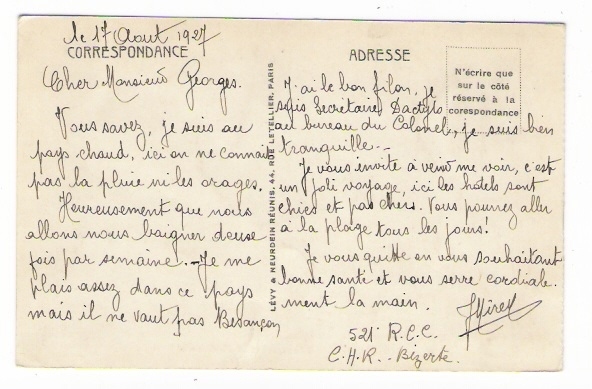 le 17 Aout 1927
CORRESPONDANCE
Cher Monsieur Georges.
Vous savez, je suis au
pays chaud, ici on ne connait
pas la pluie ni les orages.
Heureusement que nous
allons nous baigner deux
fois par semaine. - Je me
plais assez dans ce pays
mais il ne vaut pas Besançon
LÉVY & NEURDEIN RÉUNIS, 44, RUE LETELLIER, PARIS
ADRESSE
N'écrire que
sur le côté
réservé à la
corespondance
J'ai le bon filon, je
suis Secrétaire Dactylo
au bureau du Colonel, je suis bien
tranquille. -
Je vous invite à venir me voir, c'est
un joli voyage, ici les hôtels sont
chics et pas chers. Vous pourrez aller
à la plage tous les jours!
Je vous quitte en vous souhaitant
bonne santé et vous serre cordiale-
ment la main.
521e R.C.C.
C.H.R. - Bizerte.